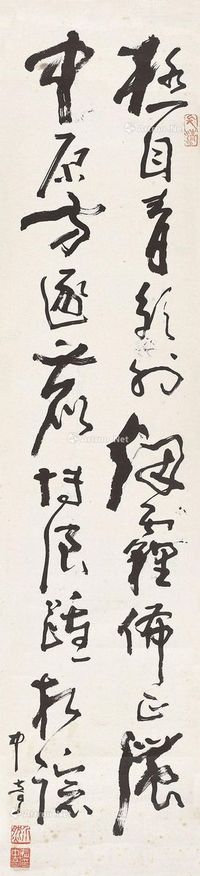 極目青郊外烟霾佈正濃
中原方逐鹿博浪踵相